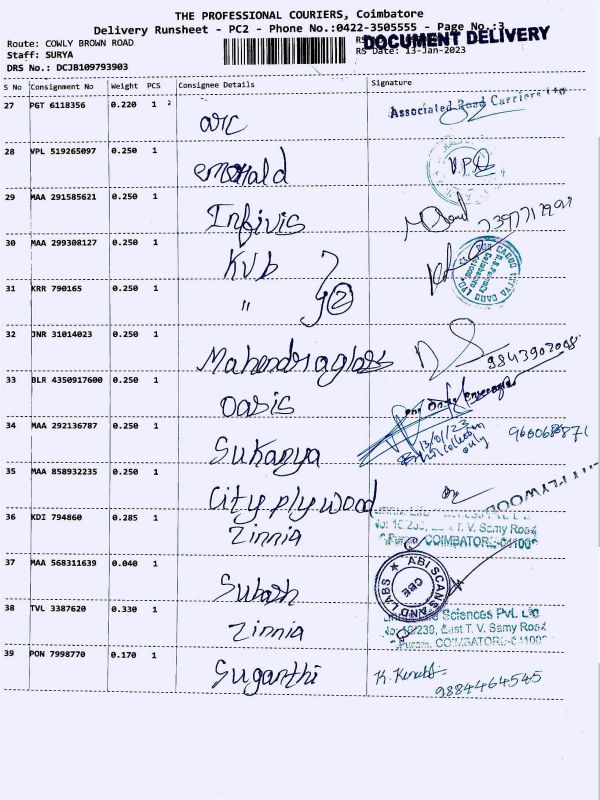 THE PROFESSIONAL COURIERS, Coimbatore
Delivery Runsheet - PC2 - Phone No.:0422-3505555 - Page No.:3
DOCUMENT DELIVERY
Route: COWLY BROWN ROAD
Staff: SURYA
RS Date: 13-Jan-2023
DRS No.: DCJB109793903
S No Consignment No Weight PCS Consignee Details Signature
27 PGT 6118356 0.220 1
arc Associated Road Carriers Ltd
28 VPL 519265097 0.250 1
emerald V.P.
29 MAA 291585621 0.250 1
Infivis
30 MAA 299308127 0.250 1
KVb
31 KRR 790165 0.250 1
" 2
32 JNR 31014023 0.250 1
Mahendraglass 9843902008
33 BLR 4350917600 0.250 1
Oasis
34 MAA 292136787 0.250 1
13/01/23
only
Sukanya
35 MAA 858932235 0.250 1
Cityplywood PLYWOOD
36 KDI 794860 0.285 1
Zinnia T. V. Samy Road
COIMBATORE
37 MAA 568311639 0.040 1
Subash ABI SCANS AND LABS CBE
38 TVL 3387620 0.330 1
Sciences Pvt. Ltd
Zinnia East T. V. Samy Road
39 PON 7998770 0.170 1
Suganthi K.
9884464545